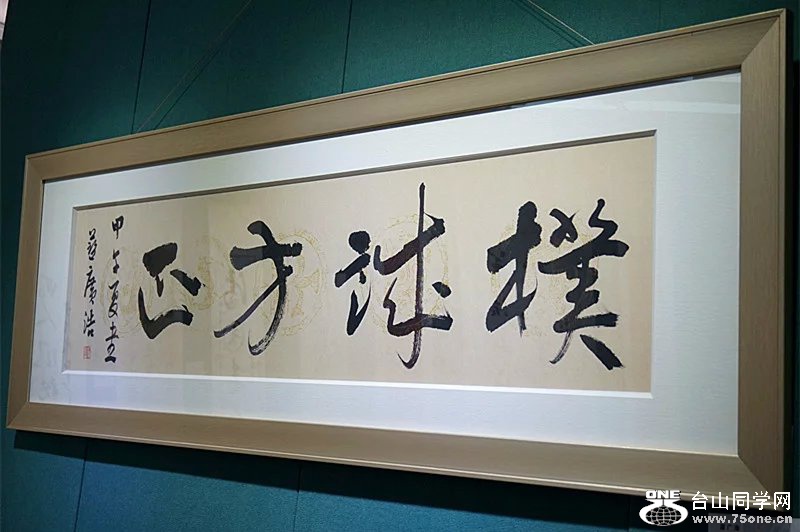 樸誠方正
甲午夏書
廣浩
ONE
台山同学网
www.75one.cn